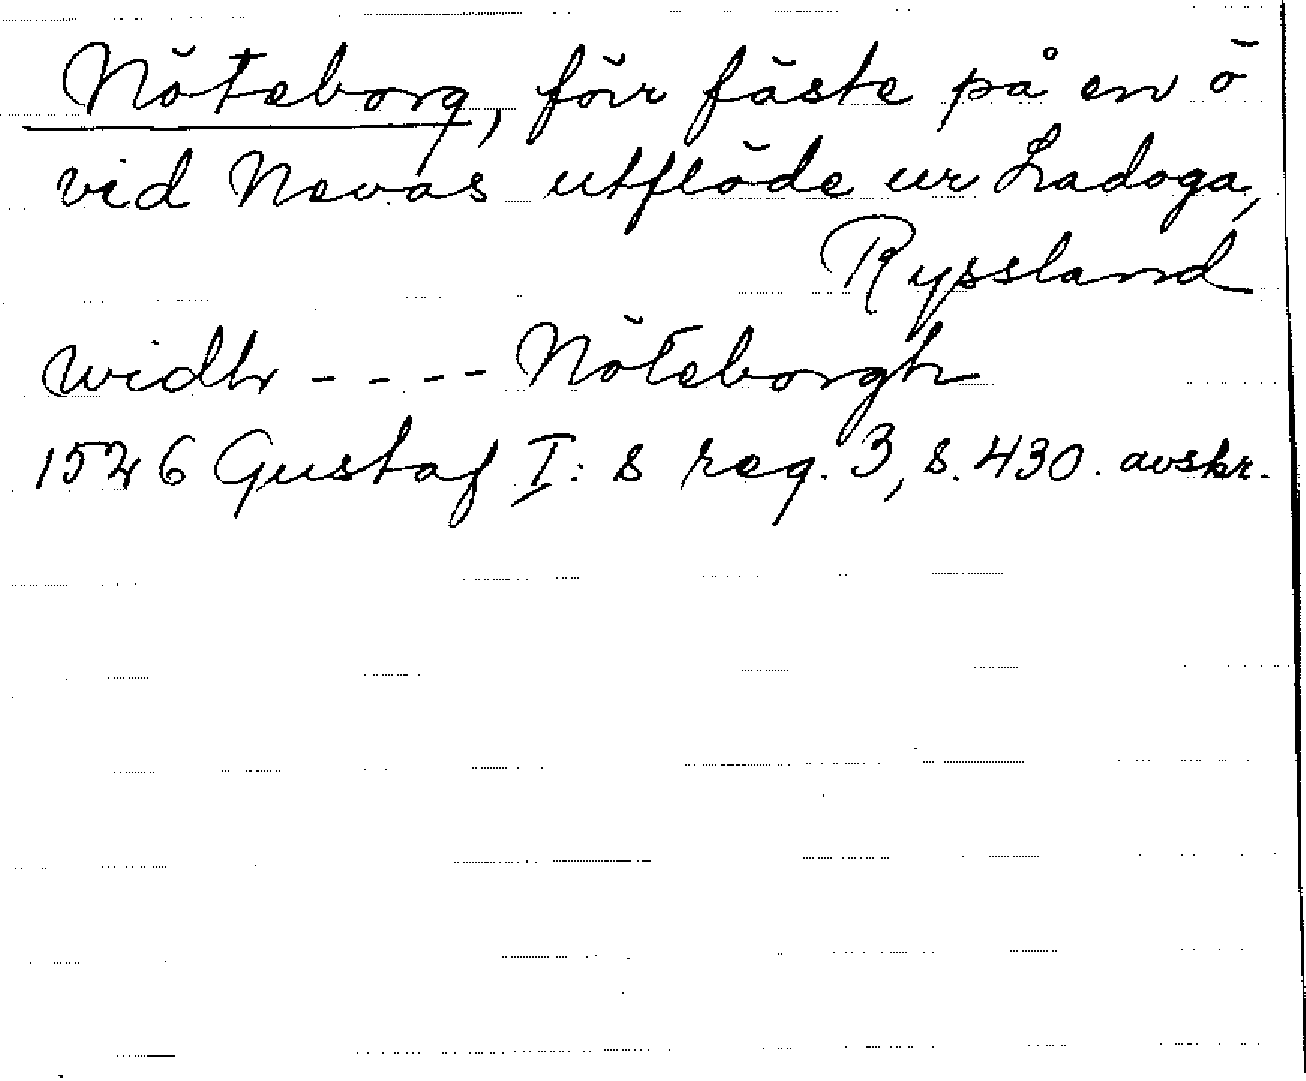 Nöteborg, förr fäste på en ö
vid Nevas utflöde ur Ladoga,
Ryssland
widh - - - - Nöteborgh
1526 Gustaf I:s reg. 3, s. 430. avskr.